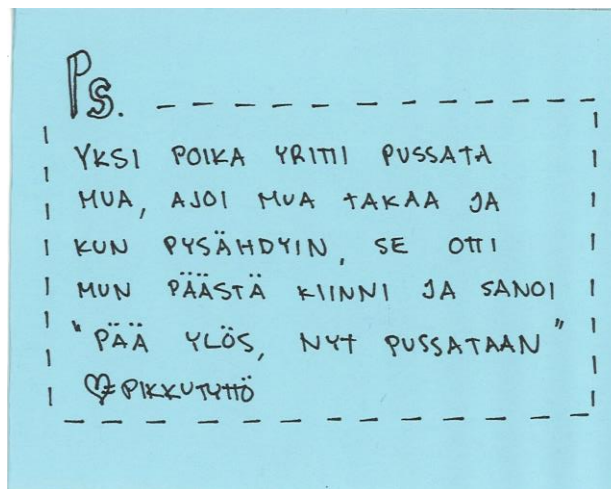 Ps.
YKSI POIKA YRITTI PUSSATA
MUA, AJOI MUA TAKAA JA
KUN PYSÄHDYIN, SE OTTI
MUN PÄÄSTÄ KIINNI JA SANOI
"PÄÄ YLÖS, NYT PUSSATAAN"
♡ PIKKUTYTTÖ